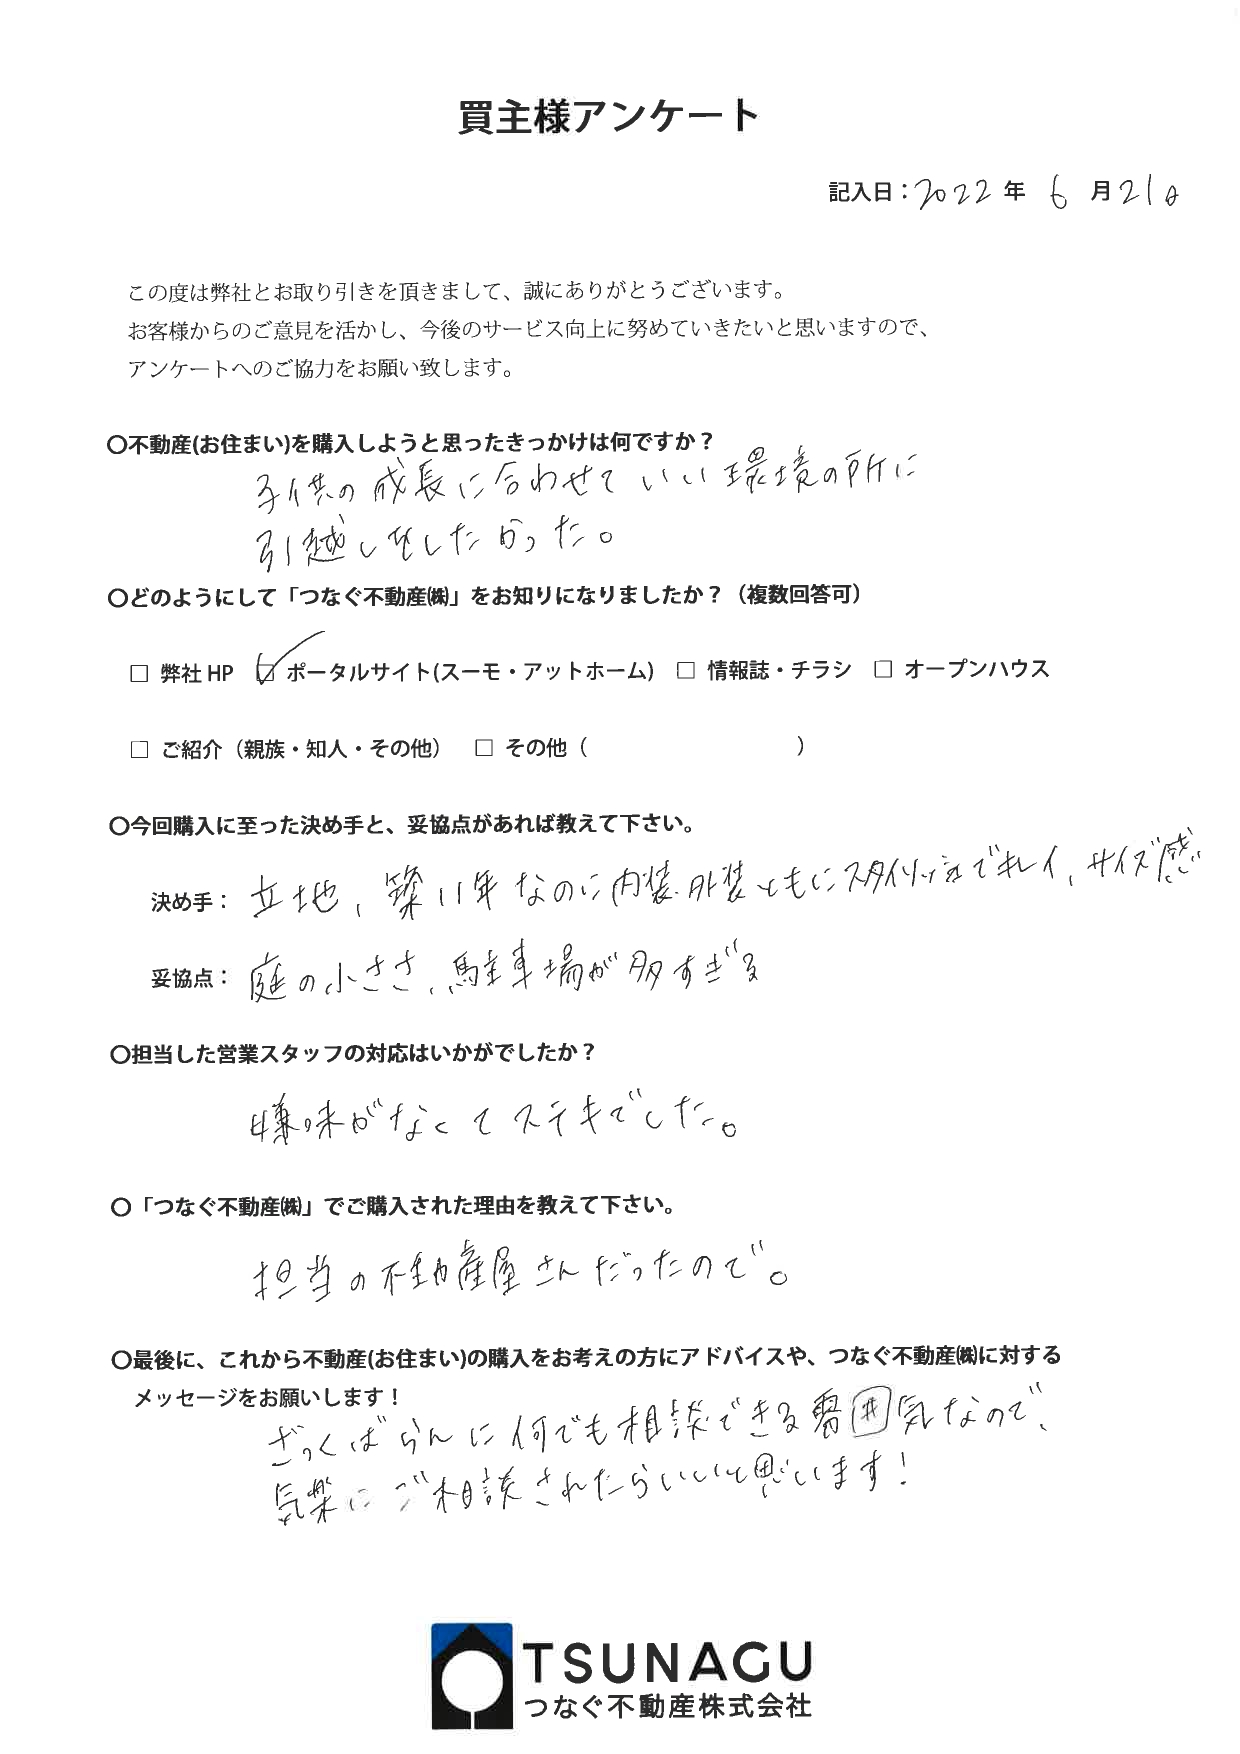 買主様アンケート
記入日：2022年 6月21日
この度は弊社とお取り引きを頂きまして、誠にありがとうございます。
お客様からのご意見を活かし、今後のサービス向上に努めていきたいと思いますので、
アンケートへのご協力をお願い致します。
〇不動産(お住まい)を購入しようと思ったきっかけは何ですか？
子供の成長に合わせていい環境の所に
引越しをしたかった。
〇どのようにして「つなぐ不動産㈱」をお知りになりましたか？（複数回答可）
□ 弊社HP ☑ ポータルサイト(スーモ・アットホーム) □ 情報誌・チラシ □ オープンハウス
□ ご紹介（親族・知人・その他） □ その他（ ）
〇今回購入に至った決め手と、妥協点があれば教えて下さい。
決め手： 立地、築11年なのに内装・外装ともにスタイリッシュでキレイ、サイズ感
妥協点： 庭の小ささ、駐車場が多すぎる
〇担当した営業スタッフの対応はいかがでしたか？
嫌味がなくてステキでした。
〇「つなぐ不動産㈱」でご購入された理由を教えて下さい。
担当の不動産屋さんだったので。
〇最後に、これから不動産(お住まい)の購入をお考えの方にアドバイスや、つなぐ不動産㈱に対する
メッセージをお願いします！
ざっくばらんに何でも相談できる雰囲気なので、
気楽にご相談されたらいいと思います！
TSUNAGU
つなぐ不動産株式会社